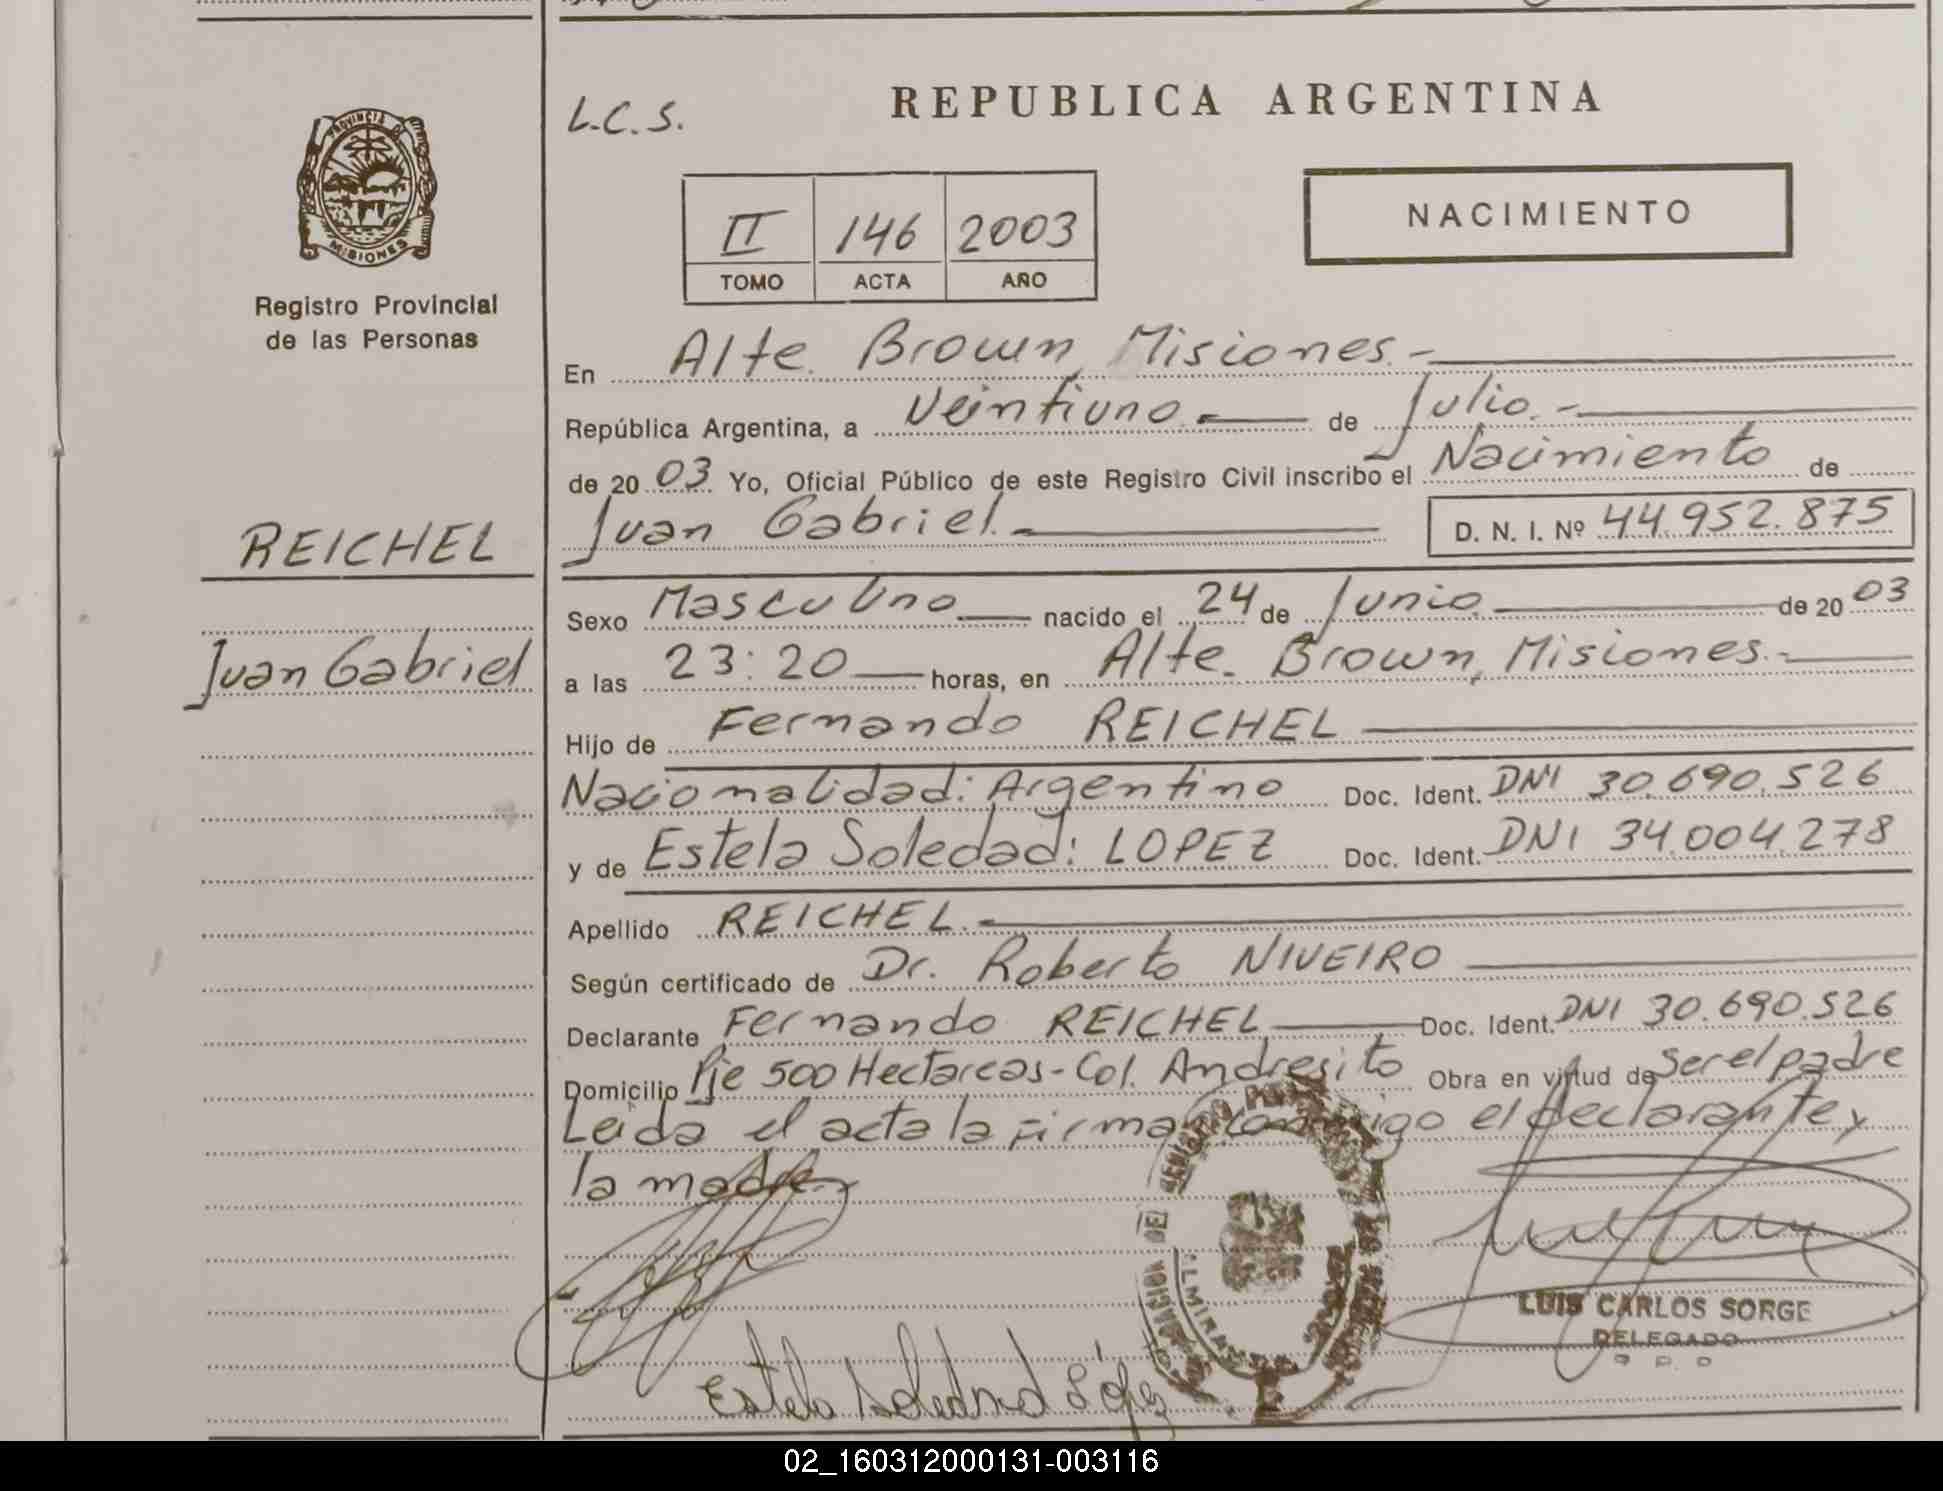 REPUBLICA ARGENTINA
L.C.S.
PROVINCIA DE MISIONES
Registro Provincial
de las Personas
II 146 2003
TOMO ACTA AÑO
NACIMIENTO
En Alte. Brown, Misiones.-
República Argentina, a Veintiuno.- de Julio.-
de 20 03 Yo, Oficial Público de este Registro Civil inscribo el Nacimiento de
Juan Gabriel.- D. N. I. Nº 44.952.875
REICHEL
Juan Gabriel
Sexo Masculino nacido el 24 de Junio de 20 03
a las 23:20 horas, en Alte. Brown, Misiones.-
Hijo de Fernando REICHEL
Nacionalidad: Argentino Doc. Ident. DNI 30.690.526
y de Estela Soledad: LOPEZ Doc. Ident. DNI 34.004.278
Apellido REICHEL.-
Según certificado de Dr. Roberto NIVEIRO
Declarante Fernando REICHEL Doc. Ident. DNI 30.690.526
Domicilio Pje 500 Hectareas-Col. Andresito Obra en virtud de Ser el padre
Leida el acta la firma conmigo el declarante y
la madre
LUIS CARLOS SORGE
DELEGADO
Estela Soledad López
02_160312000131-003116